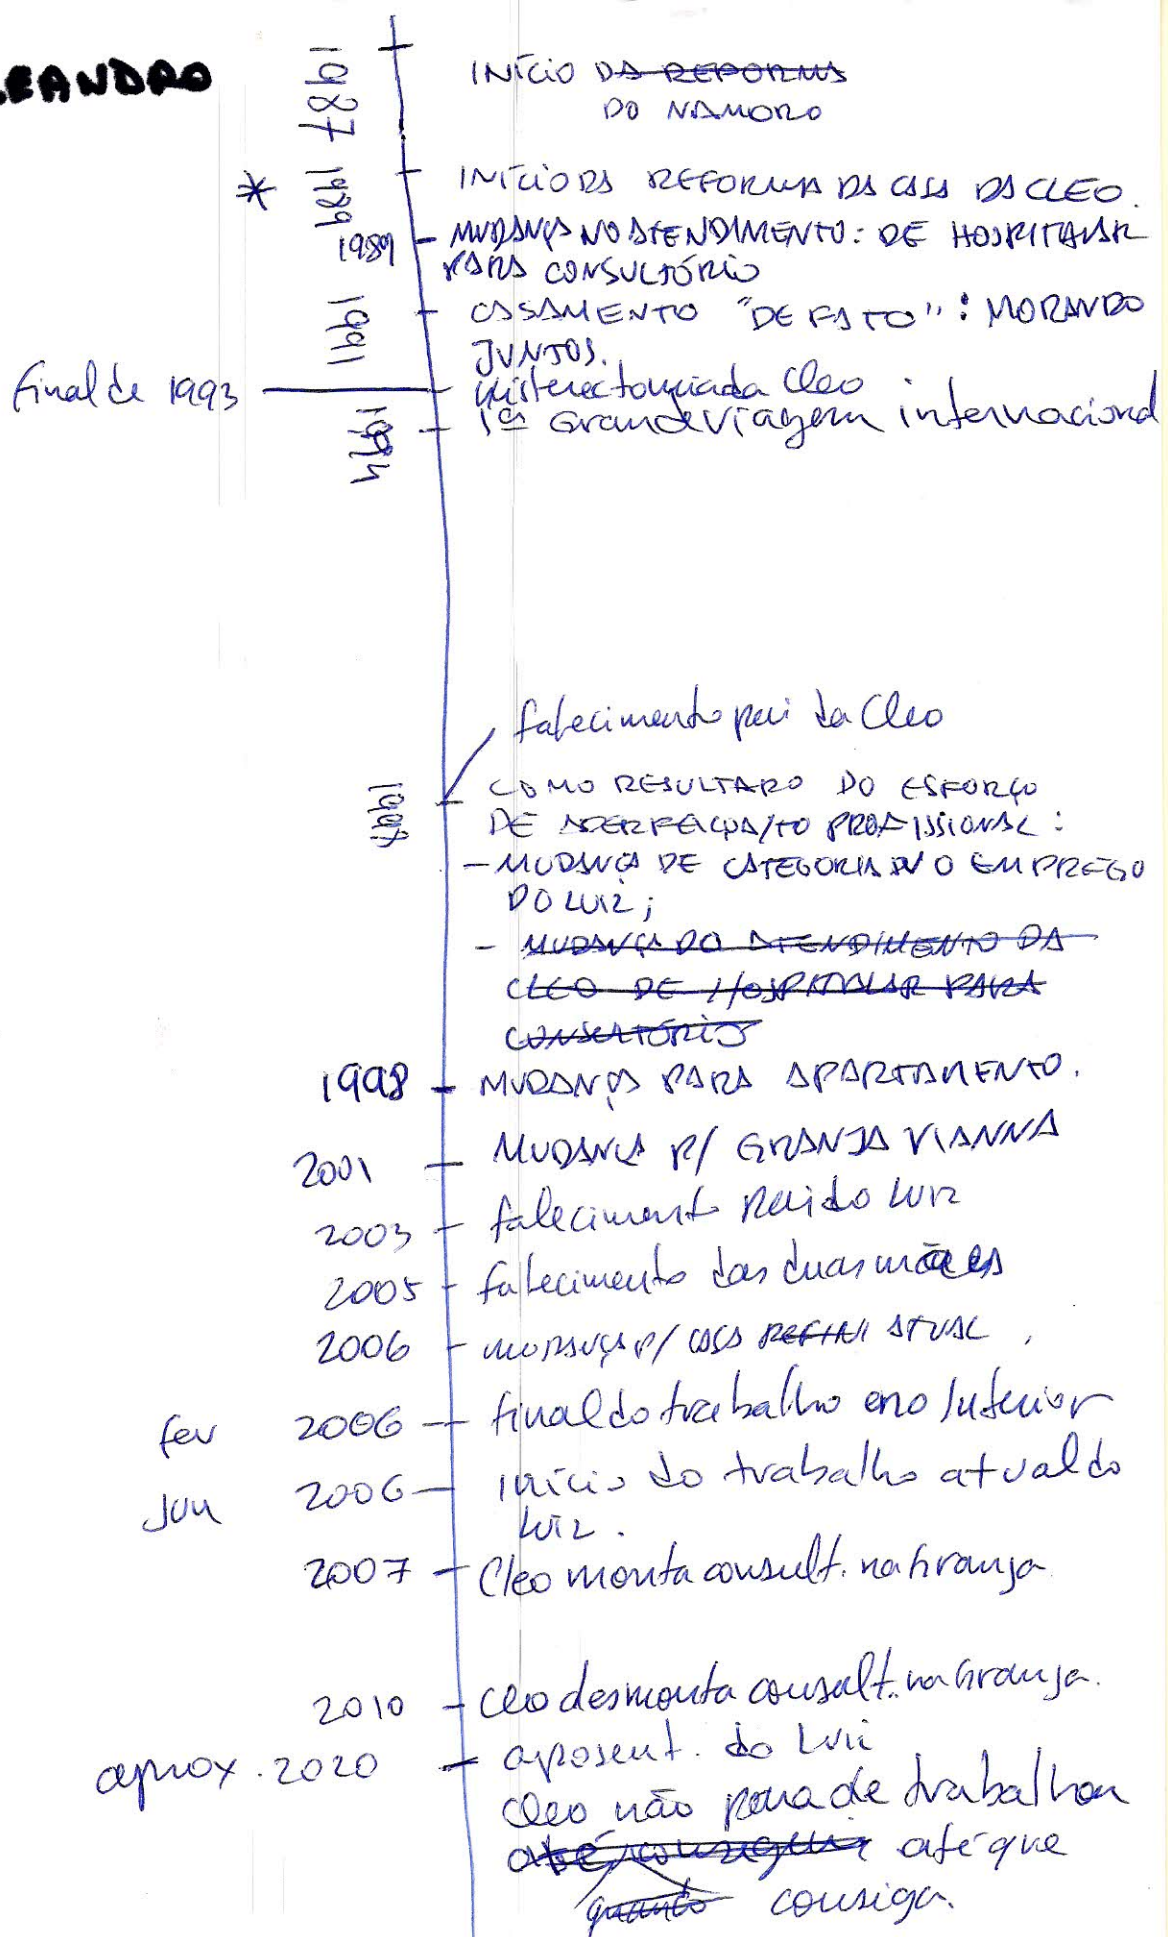 EANDRO
1987 INÍCIO DA REFORMA
DO NAMORO
* 1989 INÍCIO DA REFORMA DA CASA DA CLEO.
1989 - MUDANÇA NO ATENDIMENTO: DE HOSPITALAR
PARA CONSULTÓRIO
1991 CASAMENTO "DE FATO": MORANDO
JUNTOS.
final de 1993 histerectomia da Cleo
1994 1ª Grande viagem internacional
falecimento pai da Cleo
1997 COMO RESULTADO DO ESFORÇO
DE APERFEIÇOA/TO PROFISSIONAL:
- MUDANÇA DE CATEGORIA NO EMPREGO
DO LUIZ;
- MUDANÇA DO ATENDIMENTO DA
CLEO DE HOSPITALAR PARA
CONSULTÓRIO
1998 - MUDANÇA PARA APARTAMENTO.
2001 - MUDANÇA P/ GRANJA VIANNA
2003 - falecimento pai do Luiz
2005 - falecimento das duas mães
2006 - MUDANÇA P/ CASA ATUAL.
fev 2006 - final do trabalho no Interior
jun 2006 - início do trabalho atual do
Luiz.
2007 - Cleo monta consult. na Granja
2010 - Cleo desmonta consult. na Granja.
aprox. 2020 - aposent. do Luiz
Cleo não para de trabalhar
até conseguir até que
quando consiga.